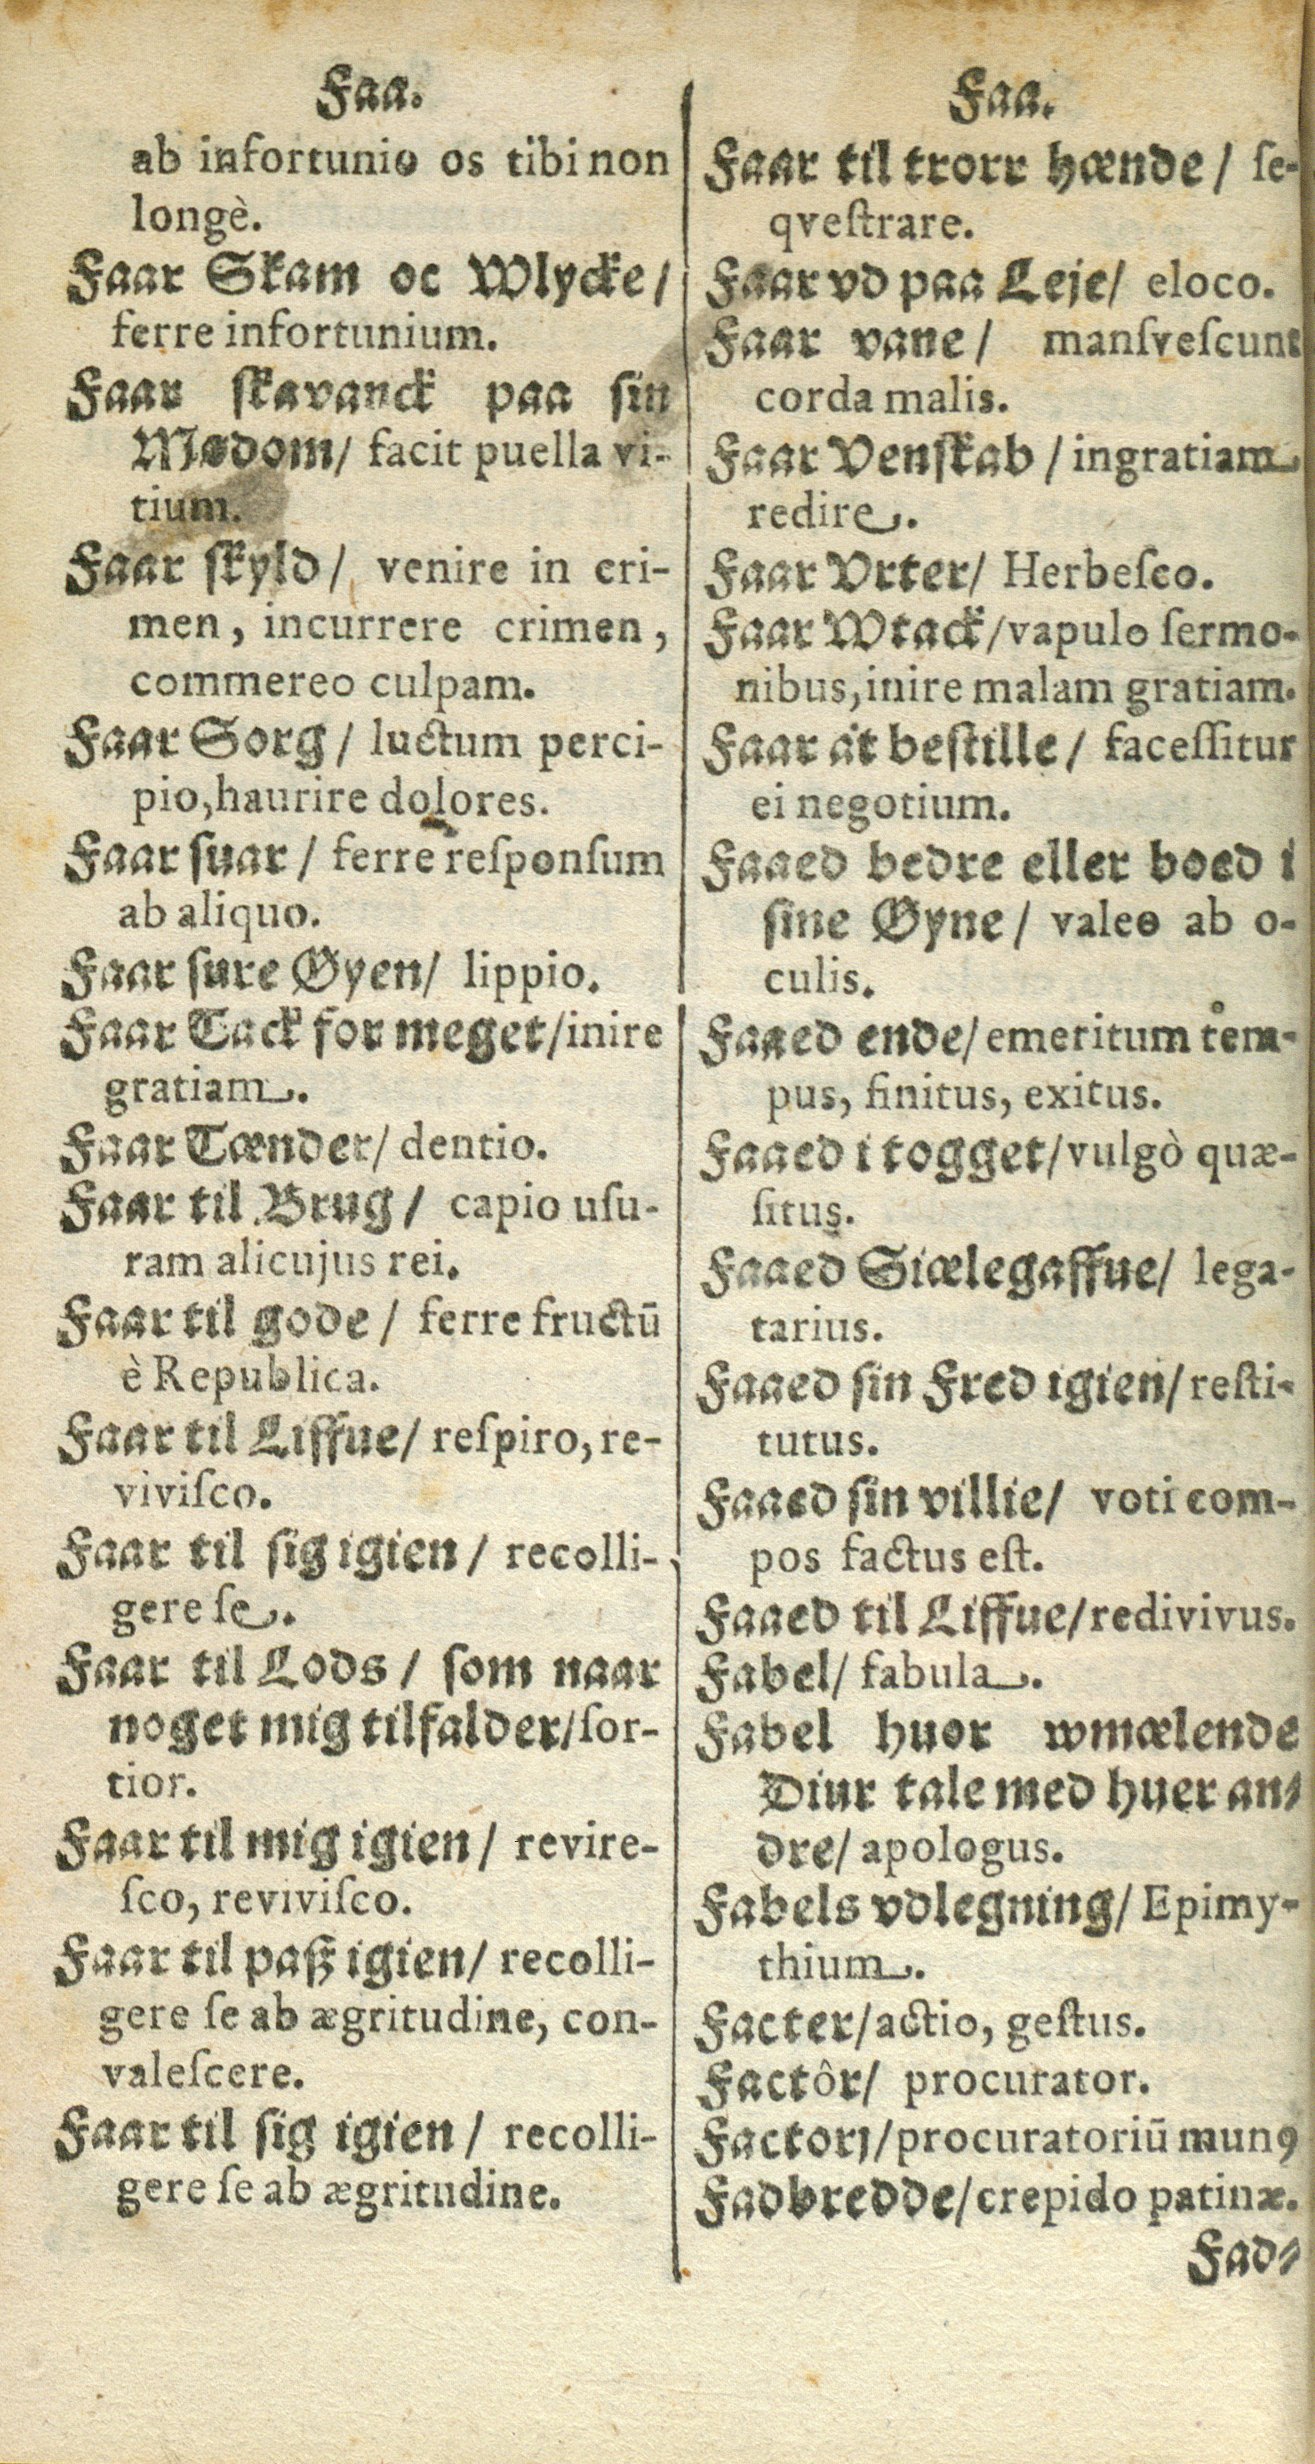 Faa.
ab infortunio os tibi non
longè.
Faar Skam oc Wlycke/
ferre infortunium.
Faar skavanck paa sin
Mødom/ facit puella vi-
tium.
Faar skyld/ venire in cri-
men, incurrere crimen,
commereo culpam.
Faar Sorg/ luctum perci-
pio, haurire dolores.
Faar suar/ ferre reſponſum
ab aliquo.
Faar sure Øyen/ lippio.
Faar Tack for meget/inire
gratiam.
Faar Tænder/ dentio.
Faar til Brug/ capio uſu-
ram alicujus rei.
Faar til gode/ ferre fructū
è Republica.
Faar til Liffue/ reſpiro, re-
viviſco.
Faar til sig igien/ recolli-
gere ſe.
Faar til Lods/ som naar
noget mig tilfalder/ſor-
tior.
Faar til mig igien/ revire-
ſco, reviviſco.
Faar til paß igien/ recolli-
gere ſe ab ægritudine, con-
valeſcere.
Faar til sig igien/ recolli-
gere ſe ab ægritudine.
Faa.
Faar til trorr hænde/ ſe-
qveſtrare.
Faar vd paa Leje/ eloco.
Faar vane/ manſveſcunt
corda malis.
Faar Venskab/ ingratiam
redire.
Faar Vrter/ Herbeſco.
Faar Wtack/vapulo ſermo-
nibus, inire malam gratiam.
Faar at bestille/ faceſſitur
ei negotium.
Faaed bedre eller boed i
sine Øyne/ valeo ab o-
culis.
Faaed ende/ emeritum tem-
pus, finitus, exitus.
Faaed i togget/vulgò quæ-
ſitus.
Faaed Siælegaffue/ lega-
tarius.
Faaed sin Fred igien/ reſti-
tutus.
Faaed sin villie/ voti com-
pos factus eſt.
Faaed til Liffue/redivivus.
Fabel/ fabula.
Fabel huor wmælende
Diur tale med huer an-
dre/ apologus.
Fabels vdlegning/ Epimy-
thium.
Facter/actio, geſtus.
Factôr/ procurator.
Factorj/procuratoriū munꝰ
Fadbredde/crepido patinæ.
Fad-